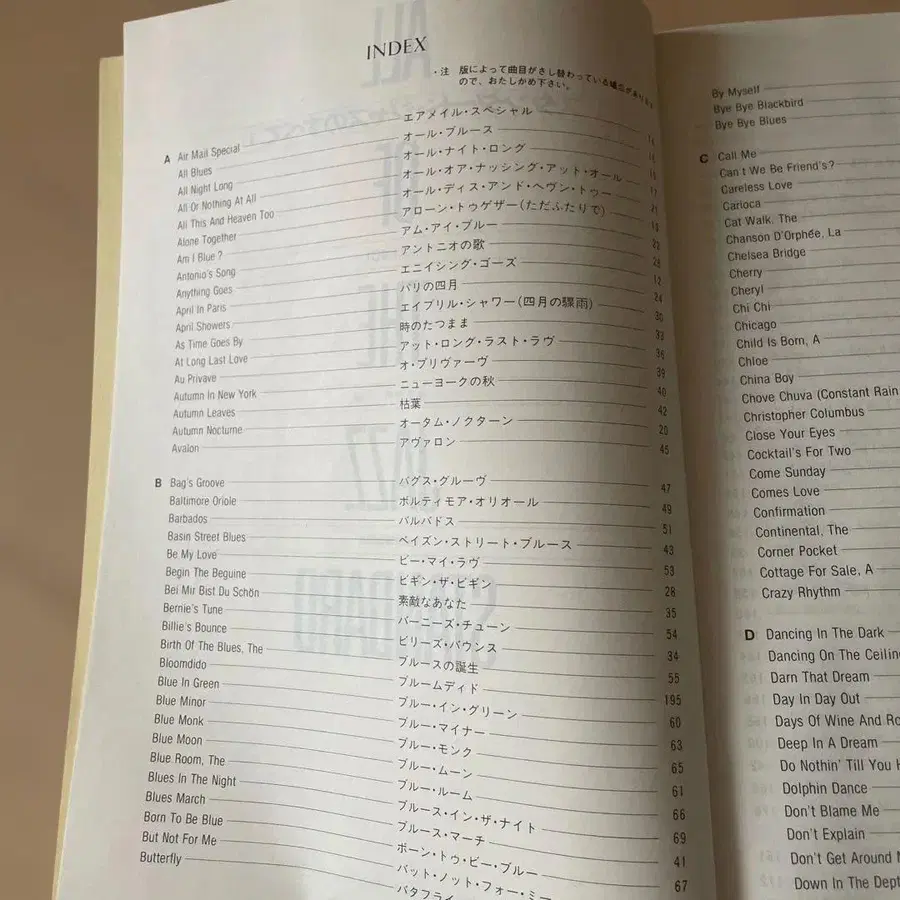 INDEX
・注 版によって曲目がさし替わっている
ので、おたしかめ下さい。
A Air Mail Special エアメイル・スペシャル 14
All Blues オール・ブルース 15
All Night Long オール・ナイト・ロング 16
All Or Nothing At All オール・オア・ナッシング・アット・オール 17
All This And Heaven Too オール・ディス・アンド・ヘヴン・トゥー 21
Alone Together アローン・トゥゲザー(ただふたりで) 18
Am I Blue ? アム・アイ・ブルー 23
Antonio's Song アントニオの歌 28
Anything Goes エニイシング・ゴーズ 12
April In Paris パリの四月 24
April Showers エイプリル・シャワー(四月の驟雨) 30
As Time Goes By 時のたつまま 33
At Long Last Love アット・ロング・ラスト・ラヴ 36
Au Privave オ・プリヴァーヴ 39
Autumn In New York ニューヨークの秋 40
Autumn Leaves 枯葉 42
Autumn Nocturne オータム・ノクターン 20
Avalon アヴァロン 45
B Bag's Groove バグス・グルーヴ 47
Baltimore Oriole ボルティモア・オリオール 49
Barbados バルバドス 51
Basin Street Blues ベイズン・ストリート・ブルース 43
Be My Love ビー・マイ・ラヴ 53
Begin The Beguine ビギン・ザ・ビギン 28
Bei Mir Bist Du Schön 素敵なあなた 35
Bernie's Tune バーニーズ・チューン 54
Billie's Bounce ビリーズ・バウンス 34
Birth Of The Blues, The ブルースの誕生 55
Bloomdido ブルームディド 195
Blue In Green ブルー・イン・グリーン 60
Blue Minor ブルー・マイナー 63
Blue Monk ブルー・モンク 65
Blue Moon ブルー・ムーン 61
Blue Room, The ブルー・ルーム 66
Blues In The Night ブルース・イン・ザ・ナイト 69
Blues March ブルース・マーチ 41
Born To Be Blue ボーン・トゥ・ビー・ブルー 67
But Not For Me バット・ノット・フォー・ミー
Butterfly バタフライ
By Myself
Bye Bye Blackbird
Bye Bye Blues
C Call Me
Can t We Be Friend's ?
Careless Love
Carioca
Cat Walk, The
Chanson D'Orphée, La
Chelsea Bridge
Cherry
Cheryl
Chi Chi
Chicago
Child Is Born, A
Chloe
China Boy
Chove Chuva (Constant Rain
Christopher Columbus
Close Your Eyes
Cocktail's For Two
Come Sunday
Comes Love
Confirmation
Continental, The
Corner Pocket
Cottage For Sale, A
Crazy Rhythm
D Dancing In The Dark
Dancing On The Ceiling
Darn That Dream
Day In Day Out
Days Of Wine And Ro
Deep In A Dream
Do Nothin' Till You H
Dolphin Dance
Don't Blame Me
Don't Explain
Don't Get Around
Down In The Dept